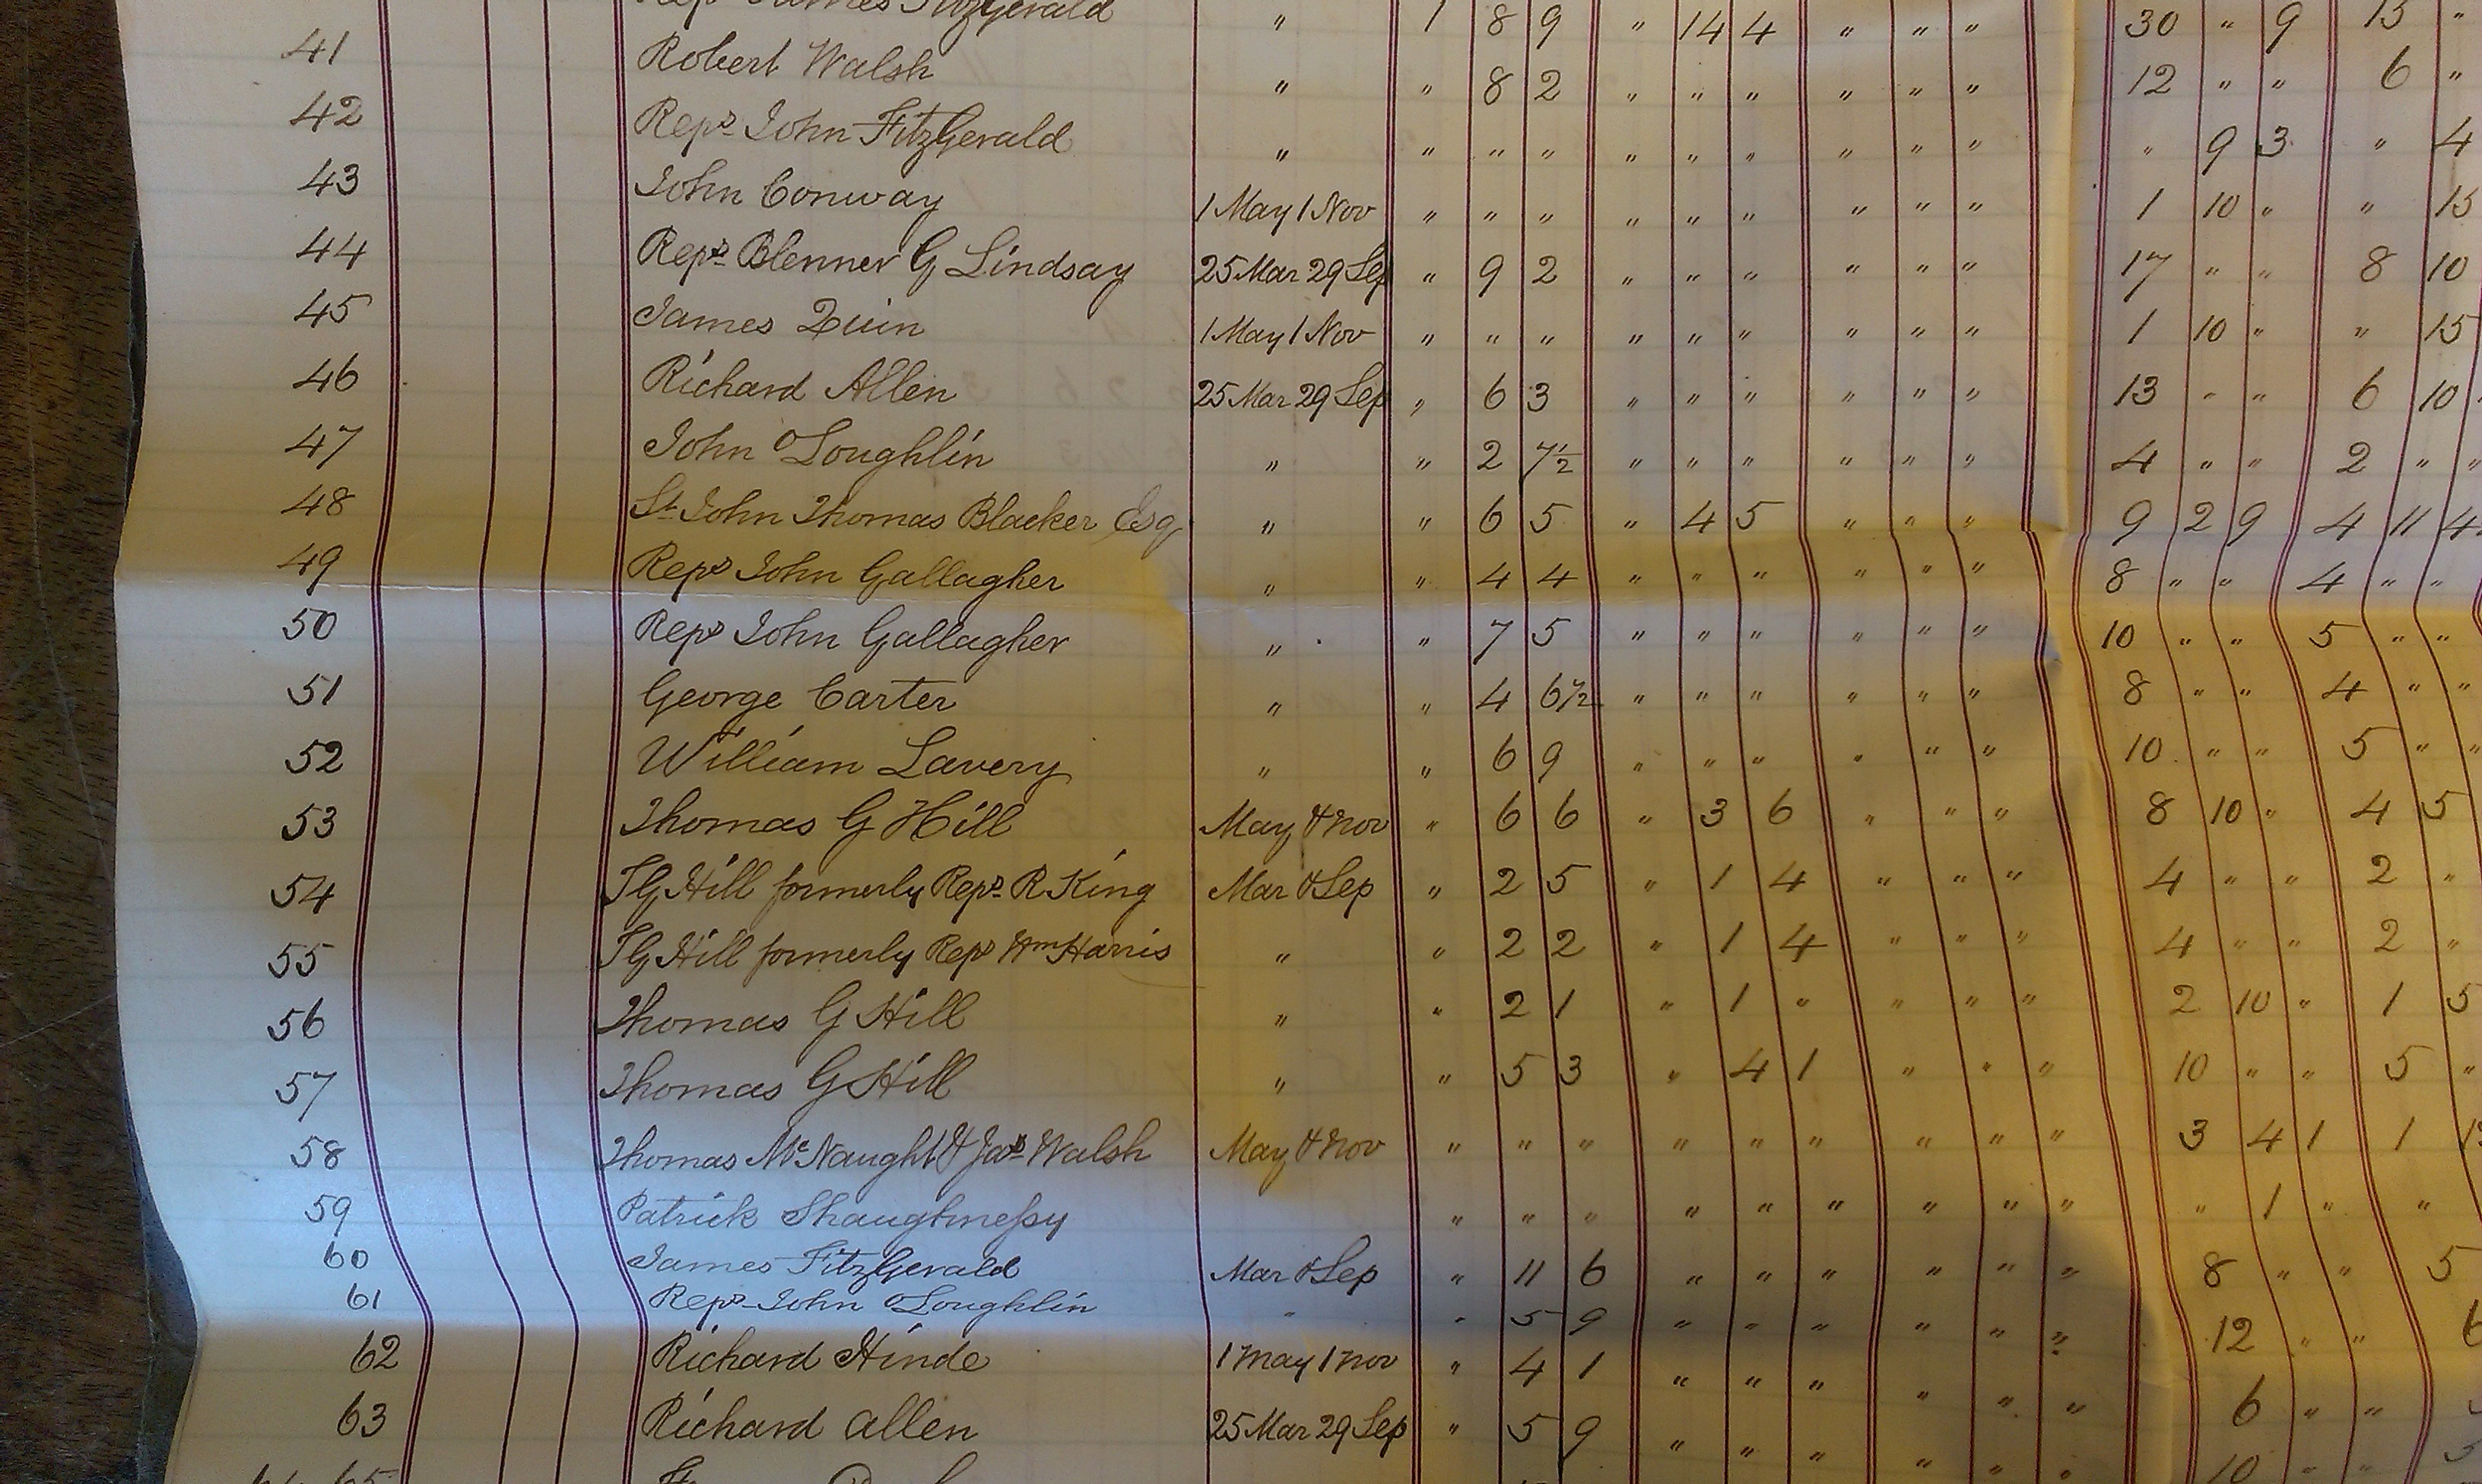 Reps James FitzGerald " 1 8 9 " 14 4 " " " 30 " 9 15 "
41 Robert Walsh " " 8 2 " " " " " " 12 " " 6 "
42 Reps John FitzGerald " " " " " " " " " " " 9 3 " 4
43 John Conway 1 May 1 Nov " " " " " " " " " 1 10 " " 15
44 Reps Blenner G Lindsay 25 Mar 29 Sep " 9 2 " " " " " " 17 " " 8 10
45 James Quin 1 May 1 Nov " " " " " " " " " 1 10 " " 15
46 Richard Allen 25 Mar 29 Sep " 6 3 " " " " " " 13 " " 6 10
47 John O'Loughlin " " 2 7½ " " " " " " 4 " " 2 " "
48 St John Thomas Blacker Esq " " 6 5 " 4 5 " " " 9 2 9 4 11 4
49 Reps John Gallagher " " 4 4 " " " " " " 8 " " 4 " "
50 Reps John Gallagher " " 7 5 " " " " " " 10 " " 5 " "
51 George Carter " " 4 6½ " " " " " " 8 " " 4 " "
52 William Lavery " " 6 9 " " " " " " 10 " " 5 " "
53 Thomas G Hill May & Nov " 6 6 " 3 6 " " " 8 10 " 4 5
54 T G Hill formerly Reps R King Mar & Sep " 2 5 " 1 4 " " " 4 " " 2 "
55 T G Hill formerly Reps Wm Harris " " 2 2 " 1 4 " " " 4 " " 2 "
56 Thomas G Hill " " 2 1 " 1 " " " " 2 10 " 1 5
57 Thomas G Hill " " 5 3 " 4 1 " " " 10 " " 5 "
58 Thomas McNaught & Jas Walsh May & Nov " " " " " " " " " 3 4 1 1
59 Patrick Shaughnessy " " " " " " " " " " 1 " "
60 James FitzGerald Mar & Sep " 11 6 " " " " " " 8 " " 5
61 Reps John O'Loughlin " " 5 9 " " " " " " 12 " " 6
62 Richard Hinde 1 May 1 Nov " 4 1 " " " " " " 6 " "
63 Richard Allen 25 Mar 29 Sep " 5 9 " " " " " " 10 " " 5